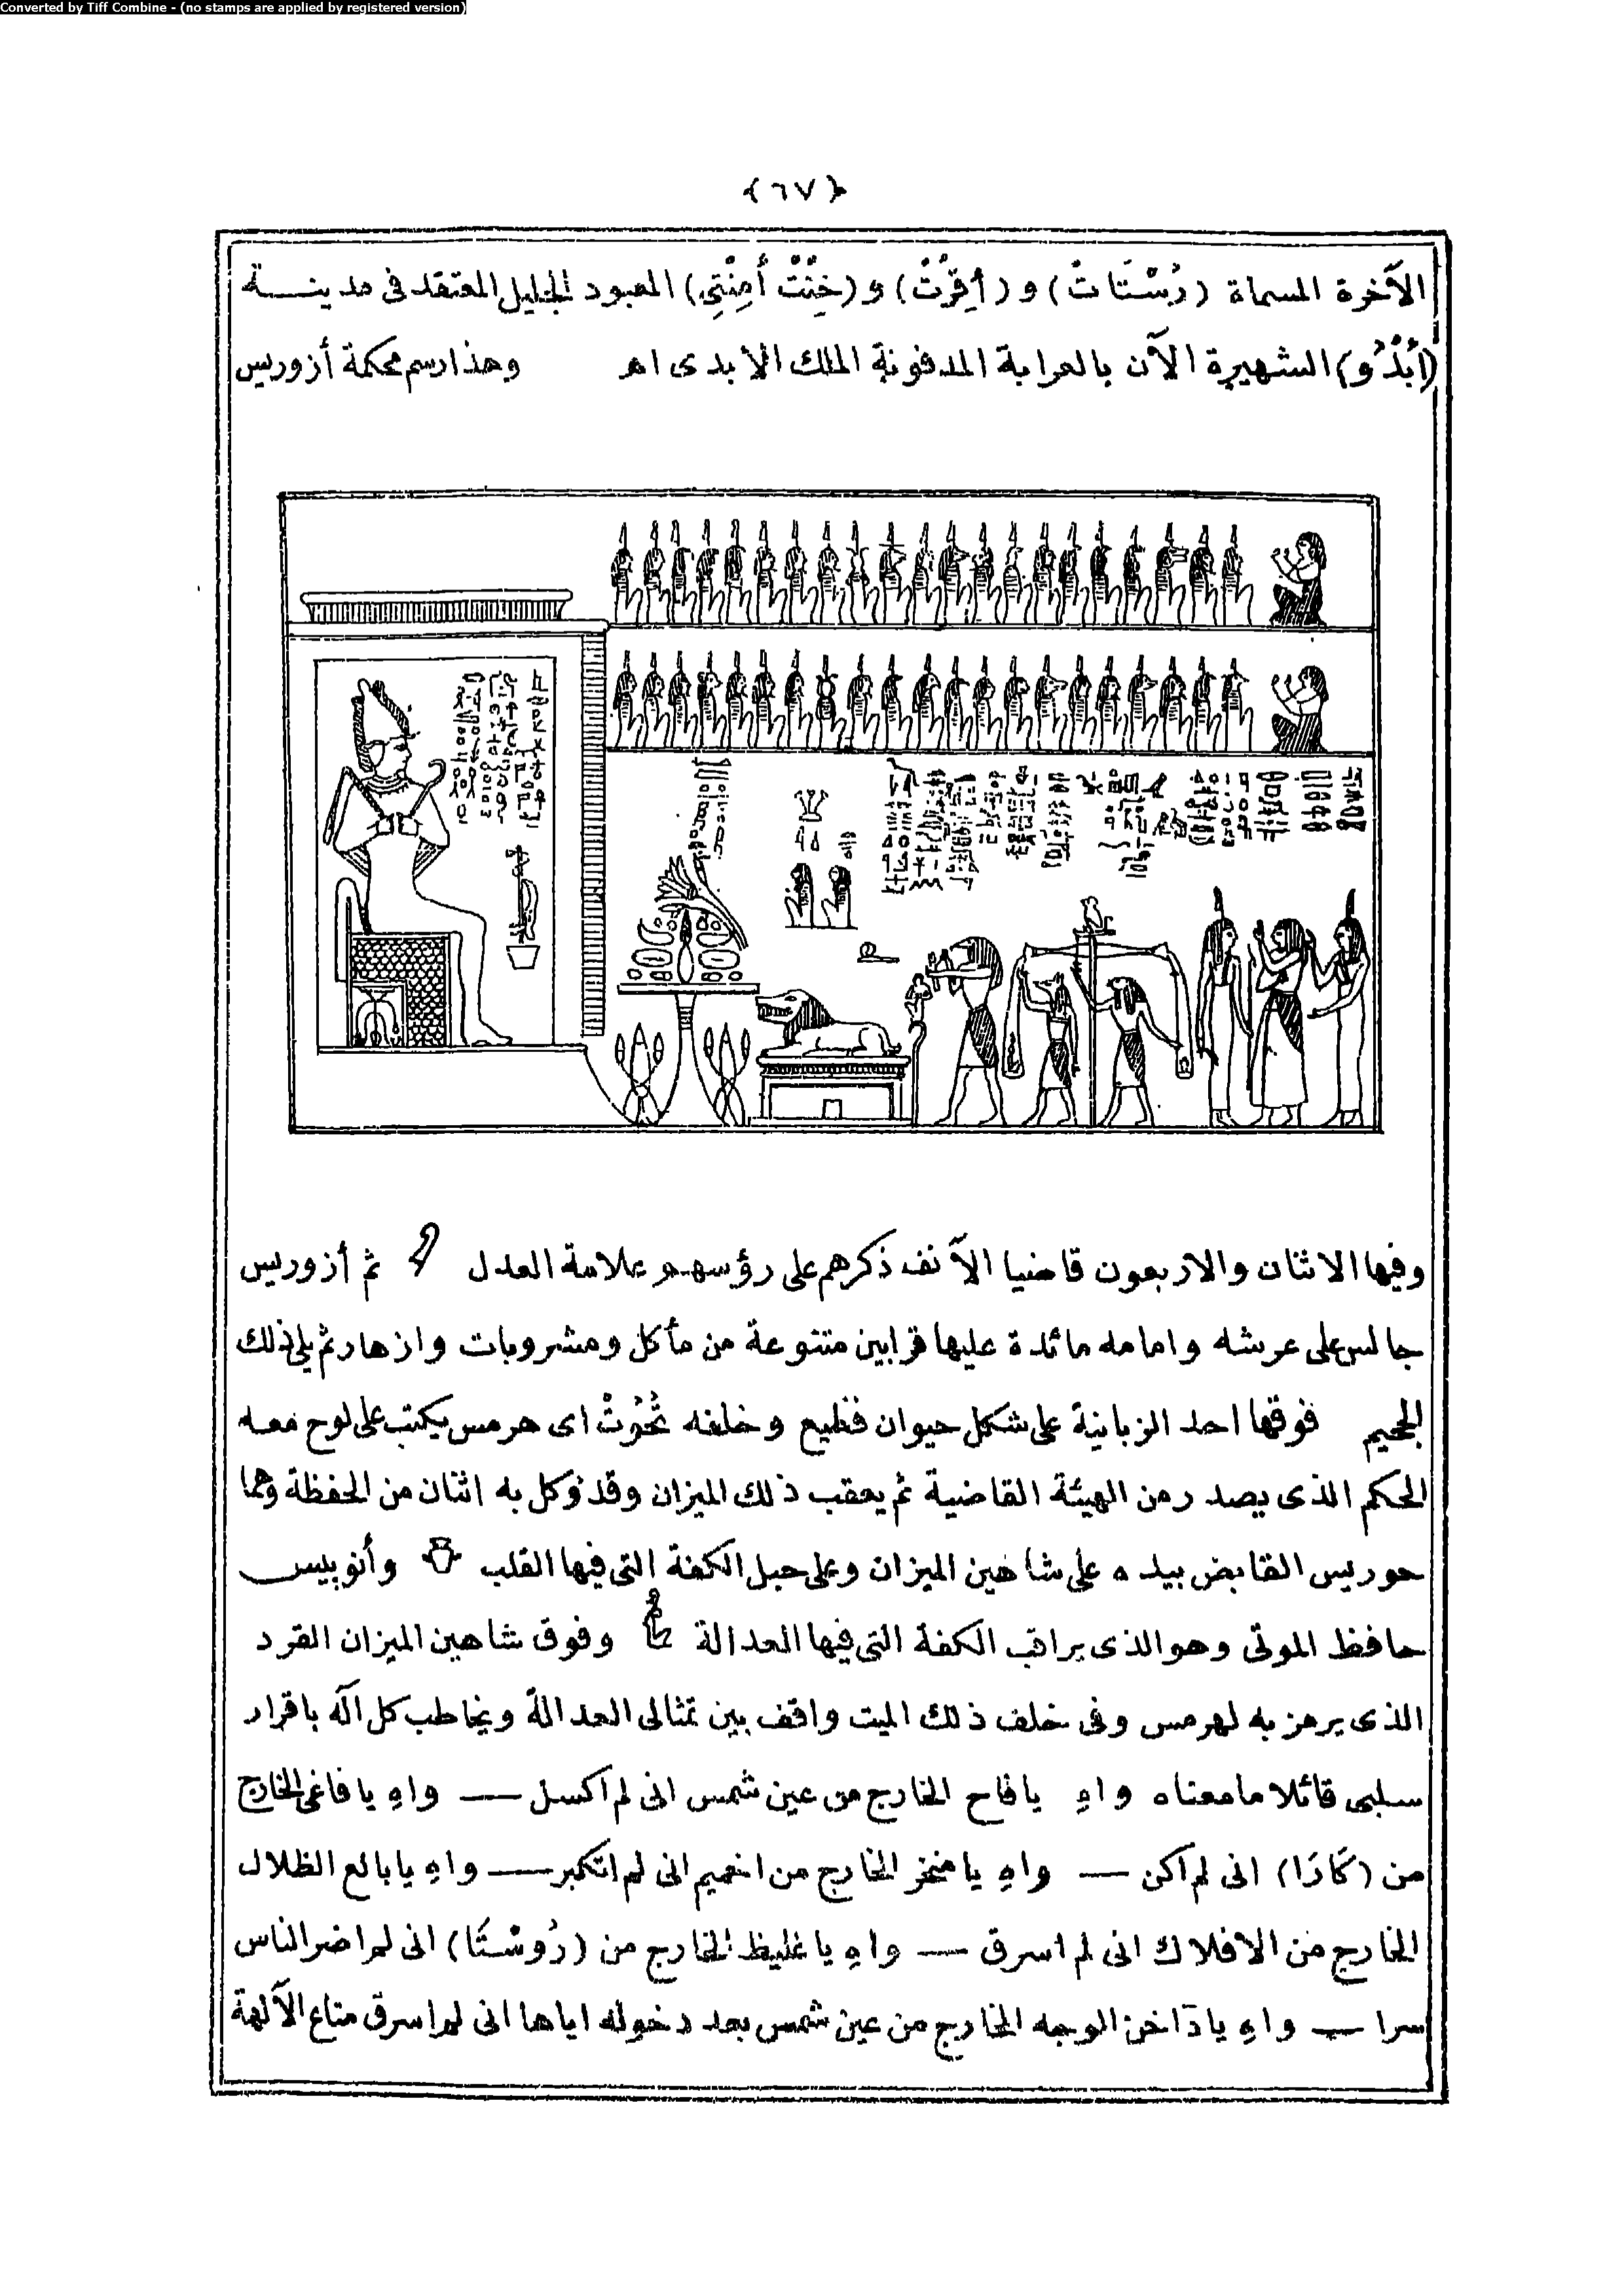 Converted by Tiff Combine - (no stamps are applied by registered version)
﴿٦٧﴾
الآخرة المسماة (رُسْتَاتْ) و (أَقِرْتْ) و (خِنْتْ أَمِنْتِى) المعبود الجليل المعتقد فى مدينة
(أَبْدُو) الشهيرة الآن بالعرابة المدفونة الملك الابدى اه وهذا رسم محكمة أزوريس
وفيها الاثنان والاربعون قاضيا الآنف ذكرهم على رؤسهم علامة العدل ثم أزوريس
جالس على عرشه وامامه مائدة عليها قرابين متنوعة من مأكل ومشروبات وازهار ثم يلى ذلك
الجحيم فوقها احد الزبانية على شكل حيوان فظيع وخلفه تُحُوتْ اى هرمس يكتب على لوح معه
الحكم الذى يصدر من الهيئة القاضية ثم يعقب ذلك الميزان وقد وكل به اثنان من الحفظة وهما
حوريس القابض بيده على شاهين الميزان وعلى حبل الكفة التى فيها القلب وأنوبيس
حافظ الموتى وهو الذى يراقب الكفة التى فيها العدالة وفوق شاهين الميزان القرد
الذى يرمز به لهرمس وفى خلف ذلك الميت واقف بين تمثالى العدالة ويخاطب كل آله باقرار
سلبى قائلا ما معناه واهِ يا فاح الخارج من عين شمس انى لم اكسل — واهِ يا فاغى الخارج
من (كَارَا) انى لم اكن — واهِ يا منخر الخارج من اخميم انى لم اتكبر — واهِ يا بالع الظلال
الخارج من الافلاك انى لم اسرق — واهِ يا غليظ الخارج من (رُوسْتَا) انى لم اضر الناس
سرا — واهِ يا داخن الوجه الخارج من عين شمس بعد دخوله اياها انى لم اسرق متاع الآلهة